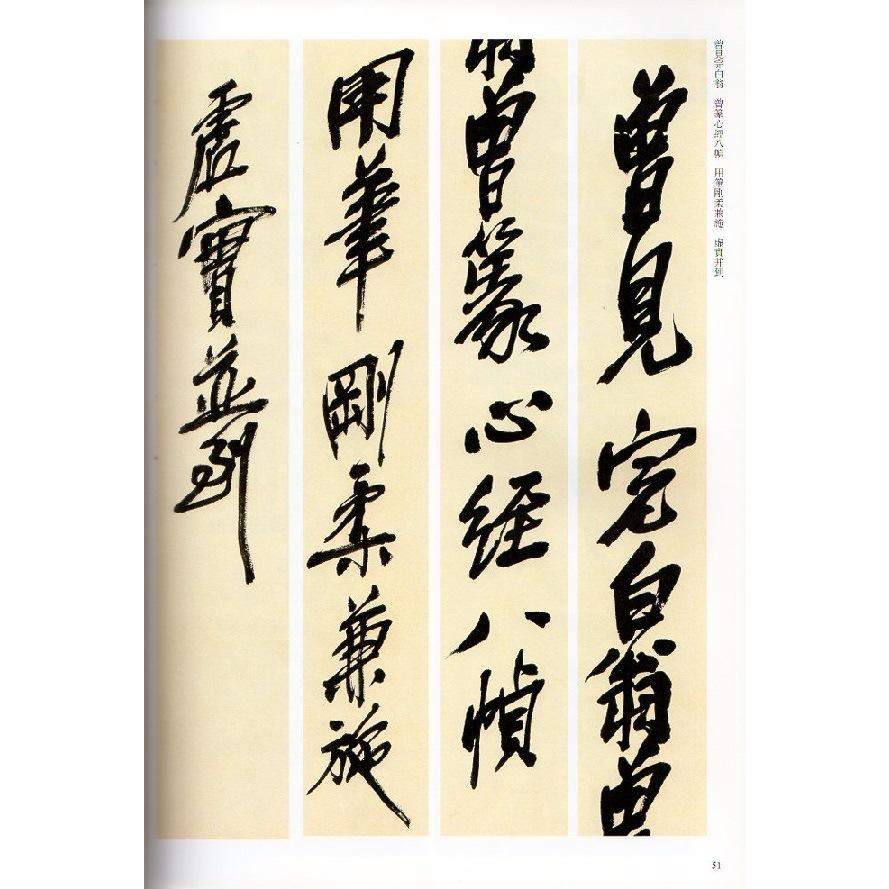 曾見完白翁 曾篆心經八幀 用筆剛柔兼施 虛實并到
曾見完白翁曾
翁曾篆心經八幀
用筆剛柔兼施
虛實並到
51